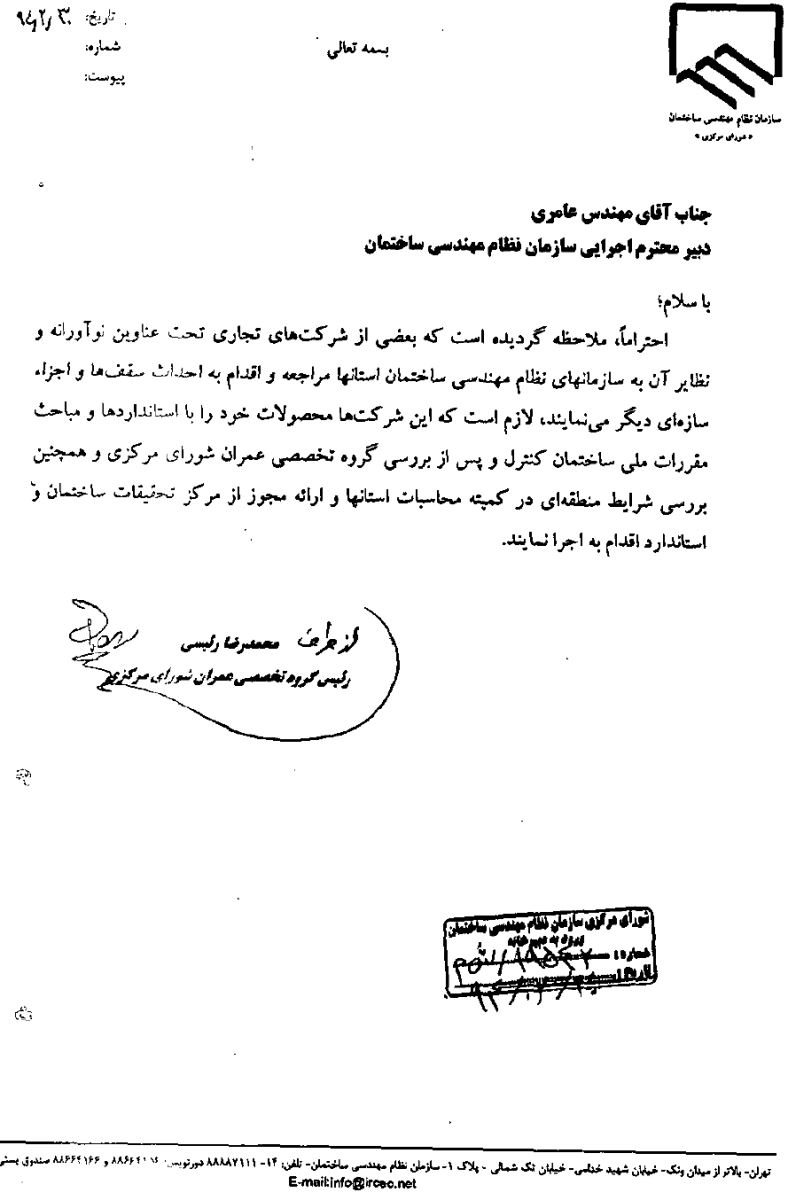 تاریخ:
شماره:
پیوست:
بسمه تعالی
سازمان نظام مهندسی ساختمان
« شورای مرکزی »
جناب آقای مهندس عامری
دبیر محترم اجرایی سازمان نظام مهندسی ساختمان
با سلام؛
احتراماً، ملاحظه گردیده است که بعضی از شرکت‌های تجاری تحت عناوین نوآورانه و
نظایر آن به سازمانهای نظام مهندسی ساختمان استانها مراجعه و اقدام به احداث سقف‌ها و اجزاء
سازه‌ای دیگر می‌نمایند، لازم است که این شرکت‌ها محصولات خود را با استانداردها و مباحث
مقررات ملی ساختمان کنترل و پس از بررسی گروه تخصصی عمران شورای مرکزی و همچنین
بررسی شرایط منطقه‌ای در کمیته محاسبات استانها و ارائه مجوز از مرکز تحقیقات ساختمان و
استاندارد اقدام به اجرا نمایند.
از طرف محمدرضا رئیسی
رئیس گروه تخصصی عمران شورای مرکزی
شورای مرکزی سازمان نظام مهندسی ساختمان
ورود به دبیرخانه
شماره:
تاریخ:
تهران- بالاتر از میدان ونک- خیابان شهید خدامی- خیابان تک شمالی - پلاک ۱- سازمان نظام مهندسی ساختمان- تلفن: ۱۴- ۸۸۸۸۷۱۱۱ دورنویس: و ۸۸۶۶۴۱۶۶ صندوق پستی
E-mail:info@irceo.net